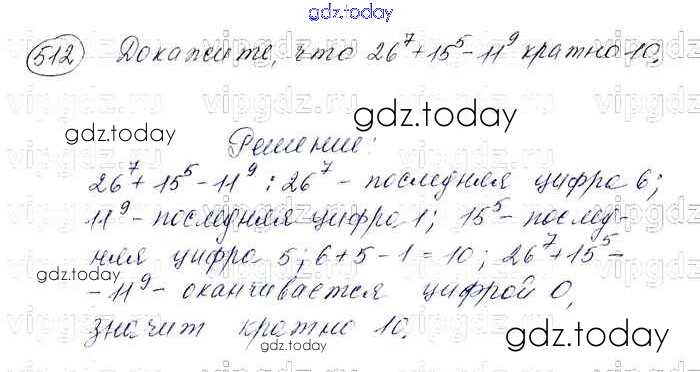 gdz.today
512 Докажите, что 26⁷+15⁵-11⁹ кратно 10.
gdz.today
gdz.today
Решение:
26⁷+15⁵-11⁹: 26⁷ - последняя цифра 6;
11⁹ - последняя цифра 1; 15⁵ - послед-
няя цифра 5; 6+5-1=10; 26⁷+15⁵-
gdz.today
-11⁹ - оканчивается цифрой 0,
значит кратно 10.
gdz.today
gdz.today